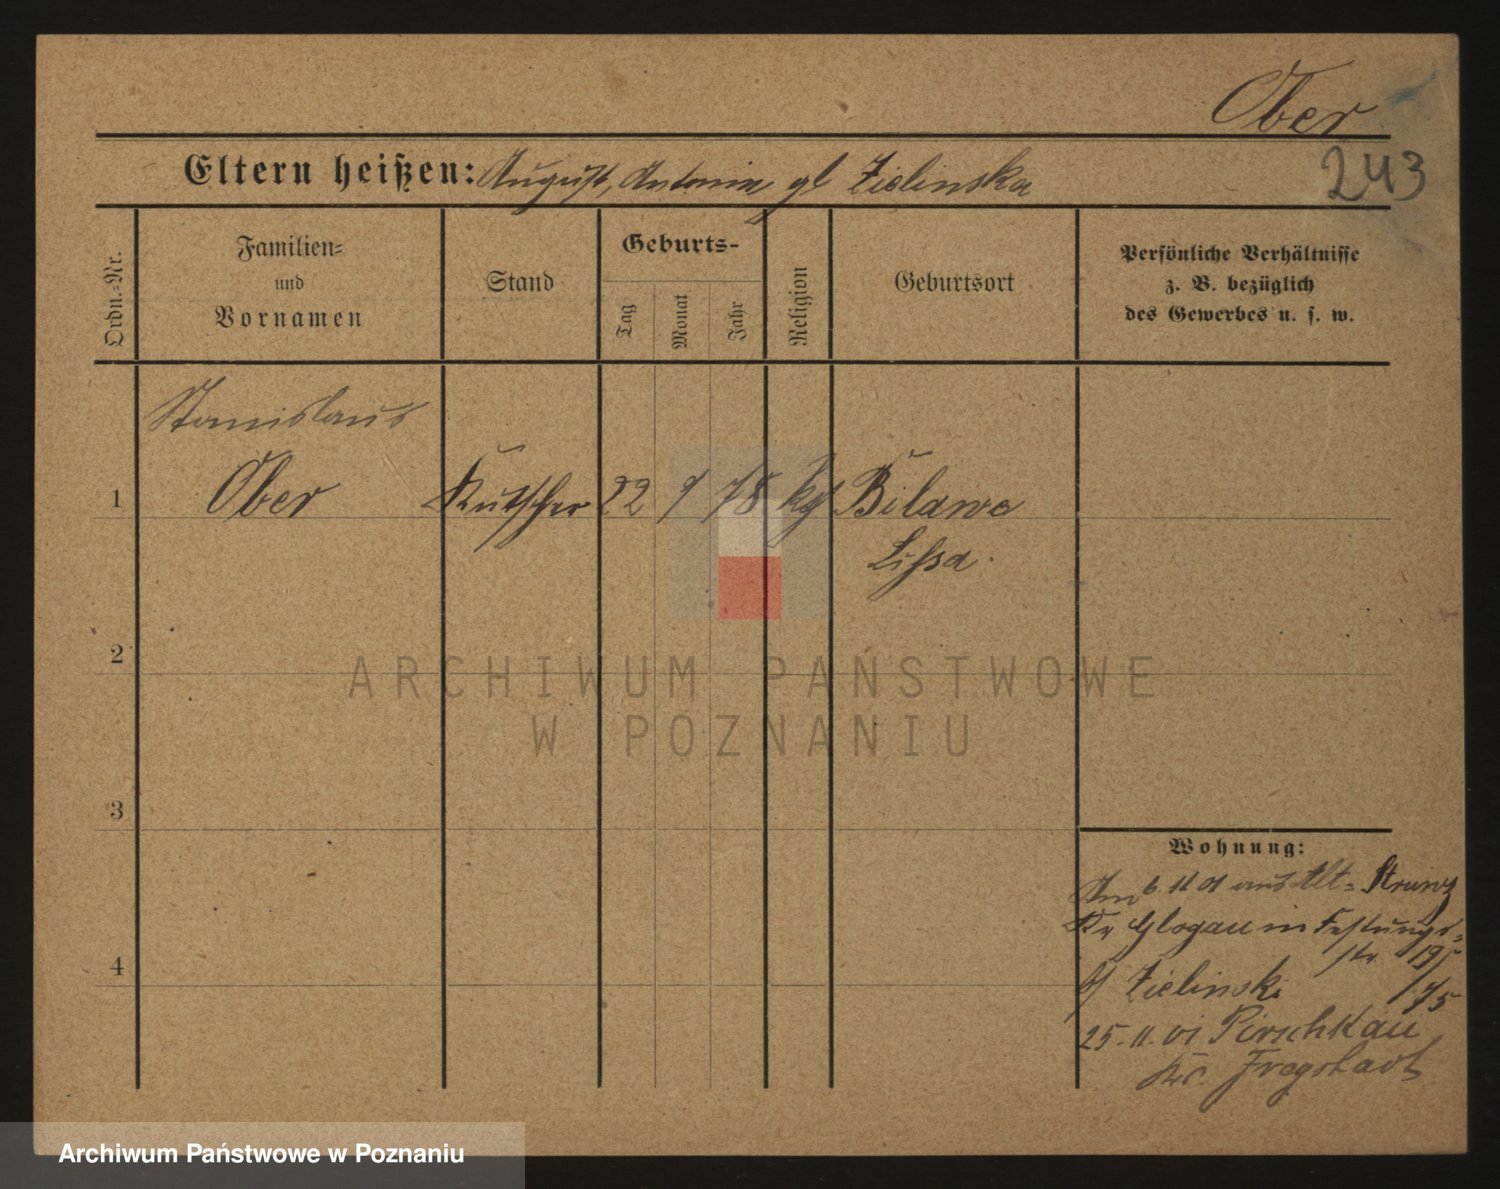 Ober
243
Eltern heißen: August, Antonia gb Zielinska
Ordn.-Nr.
Familien-
und
Vornamen
Stand
Geburts-
Tag
Monat
Jahr
Religion
Geburtsort
Persönliche Verhältnisse
z. B. bezüglich
des Gewerbes u. s. w.
Stanislaus
1 Ober Kutscher 22 9 78 kg Bilawe
Lissa.
2
ARCHIWUM PAŃSTWOWE
W POZNANIU
3
4
Wohnung:
Am 6. 11 01 aus Alt- Strunz
Kr Glogau in Festungs-
str. 19
b/ Zielinski 1/75
25. 11. 01 Pirschkau
Kr. Fraystadt
Archiwum Państwowe w Poznaniu